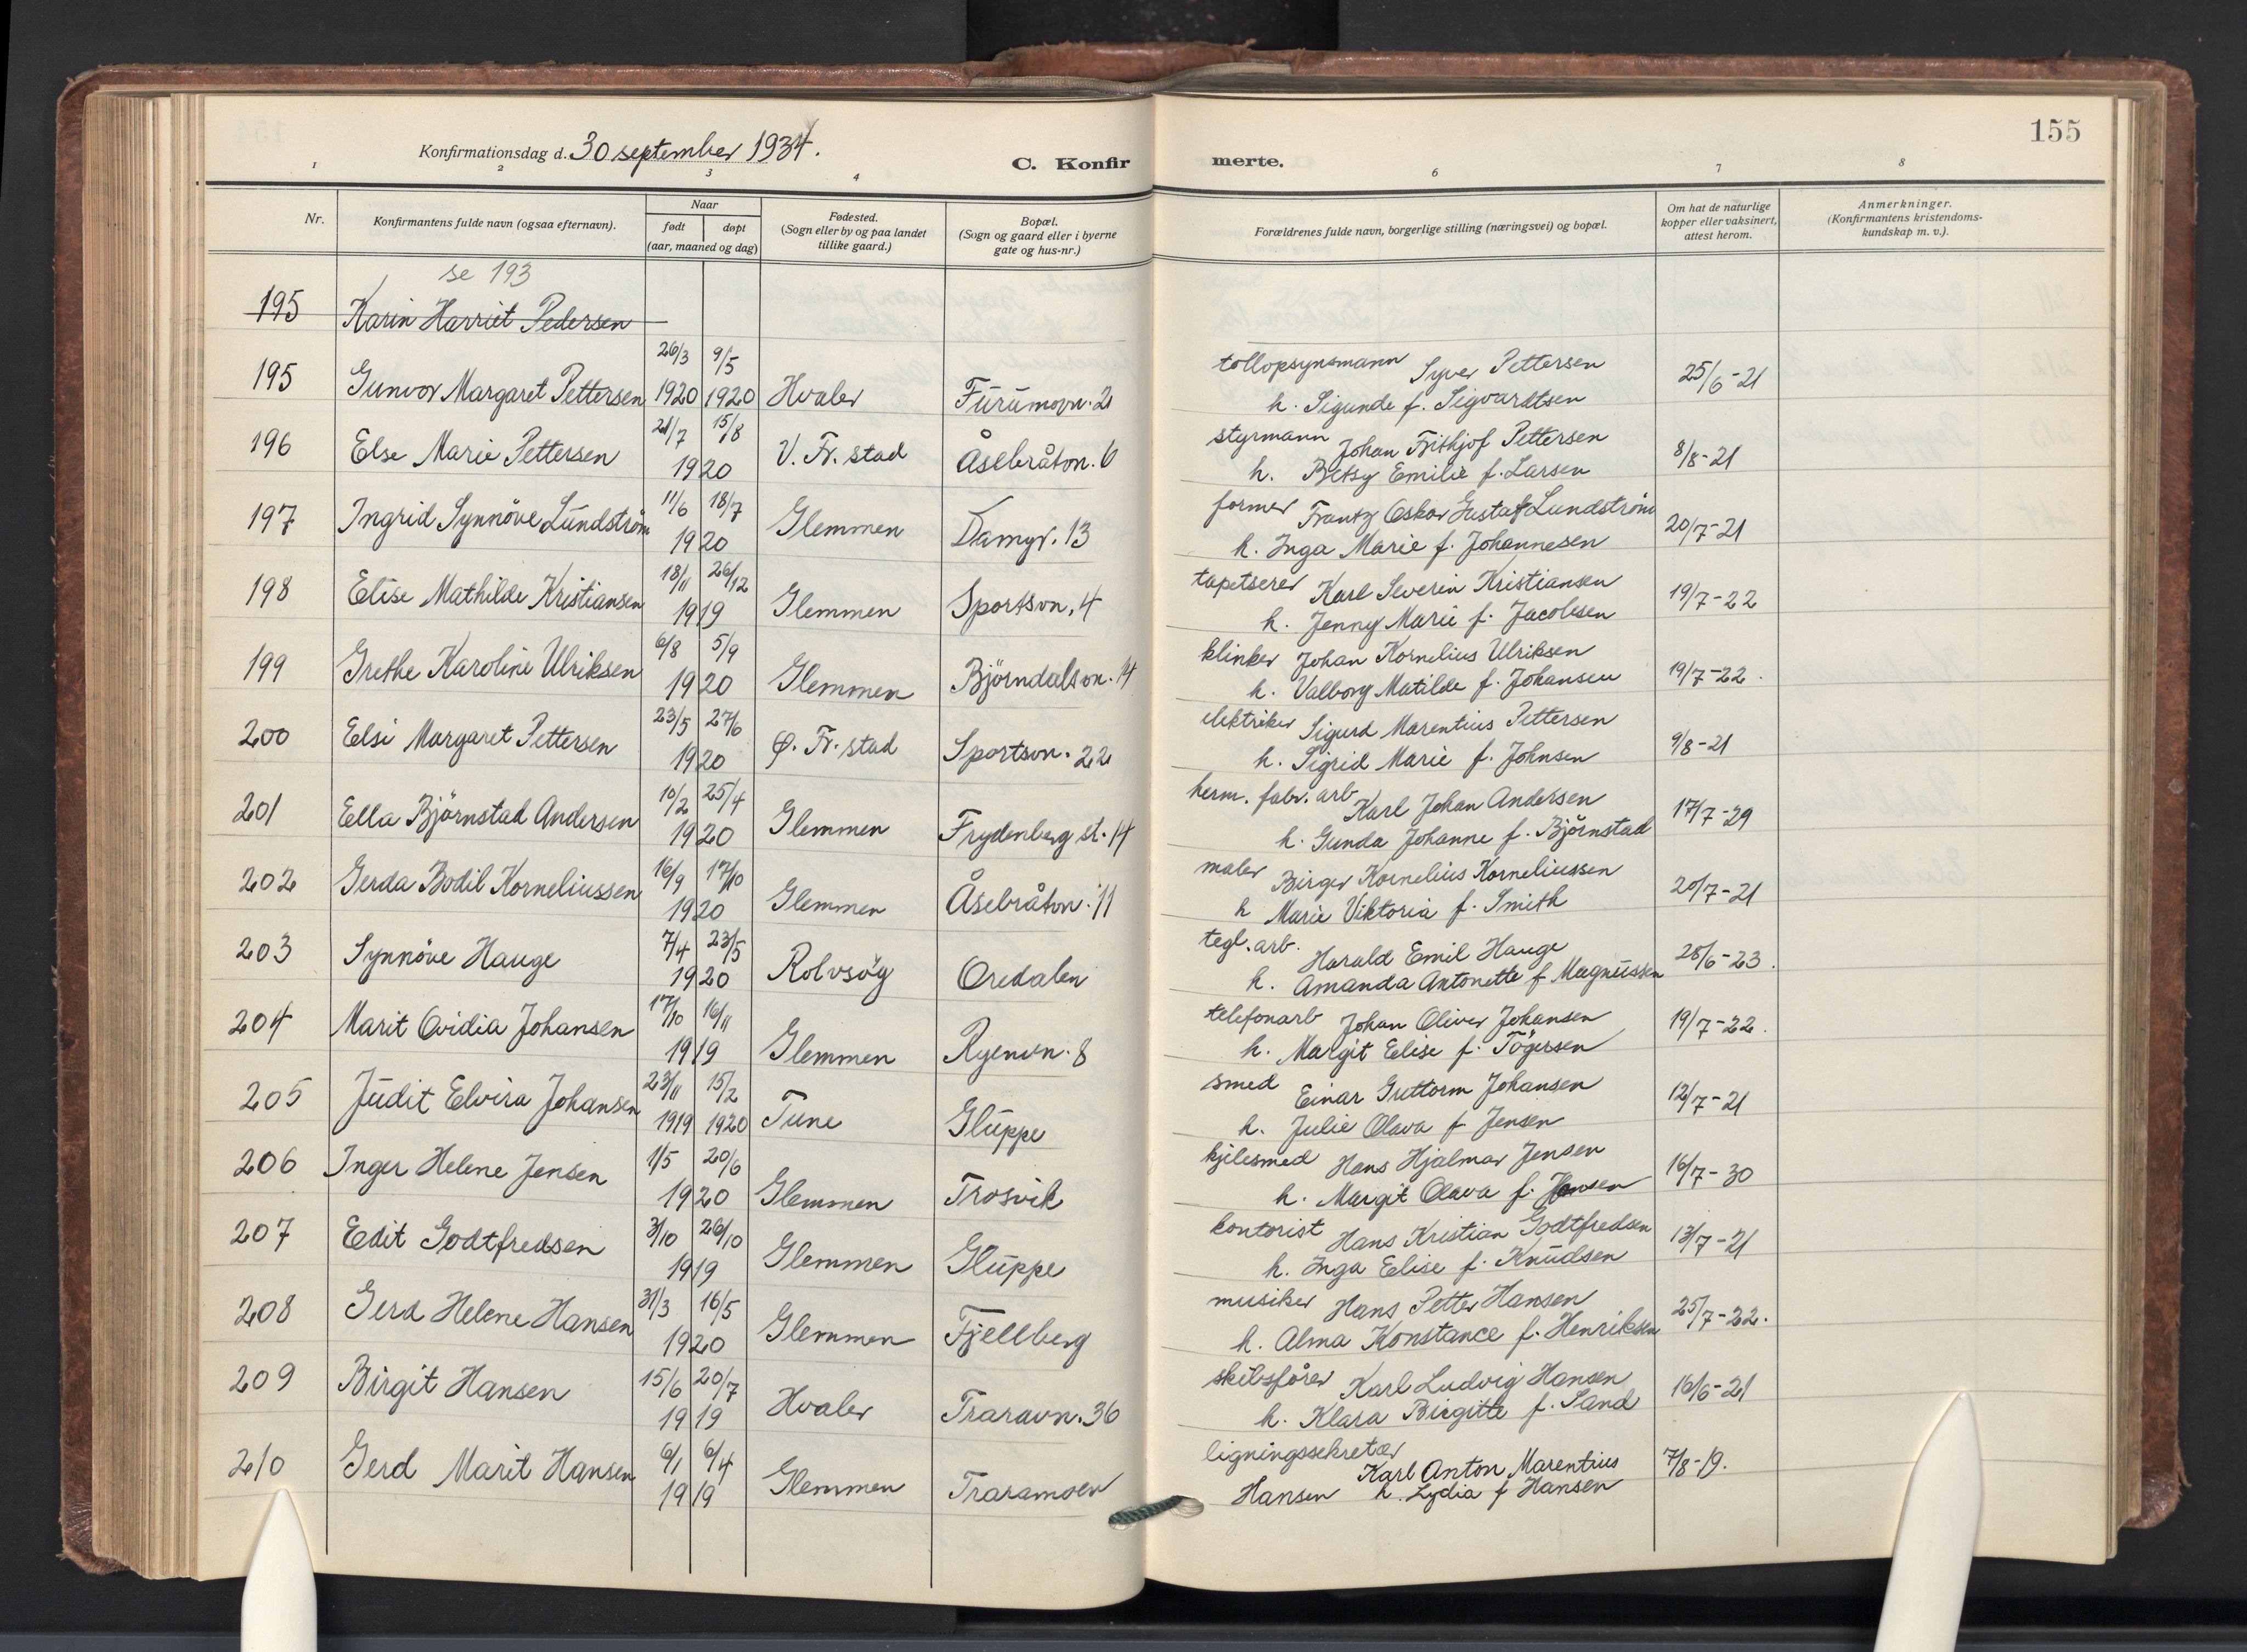 155
Konfirmationsdag d. 30 september 1934.
C. Konfir
merte.
1 2 3 4 6 7 8
Nr.
Konfirmantens fulde navn (ogsaa efternavn).
Naar
født døpt
(aar, maaned og dag)
Fødested.
(Sogn eller by og paa landet
tillike gaard.)
Bopæl.
(Sogn og gaard eller i byerne
gate og hus-nr.)
Forældrenes fulde navn, borgerlige stilling (næringsvei) og bopæl.
Om hat de naturlige
kopper eller vaksinert,
attest herom.
Anmerkninger.
(Konfirmantens kristendoms-
kundskap m. v.).
se 193
195 Karin Harriet Pedersen
26/3 9/5 tollopsynsmann Syver Pettersen
195 Gunvor Margaret Pettersen 1920 1920 Hvaler Furumovn. 21 25/6-21
h. Sigunde f. Sigvardtsen
21/7 15/8 styrmann Johan Frithjof Pettersen
196 Else Marie Pettersen 1920 V. Fr. stad Åsebråtvn. 6 8/8-21
h. Betsy Emilie f. Larsen
11/6 18/7 former Frantz Oskar Gustaf Lundström
197 Ingrid Synnöve Lundström 1920 Glemmen Damyr. 13 20/7-21
h. Inga Marie f. Johannesen
18/11 26/12 tapetserer Karl Severin Kristiansen
198 Elise Mathilde Kristiansen 1919 Glemmen Sportsvn. 4 19/7-22
h. Jenny Marie f. Jacobsen
6/8 5/9 klinker Johan Kornelius Ulriksen
199 Grethe Karoline Ulriksen 1920 Glemmen Björndalsvn. 14 19/7-22.
h. Valborg Matilde f. Johansen
23/5 27/6 elektriker Sigurd Marentius Pettersen
200 Elsi Margaret Pettersen 1920 Ø. Fr. stad Sportsvn. 22 9/8-21
h. Sigrid Marie f. Johnsen
10/2 25/4 herm. fabr. arb. Karl Johan Andersen
201 Ella Björnstad Andersen 1920 Glemmen Frydenberg st. 14 17/7-29
h. Gunda Johanne f. Björnstad
16/9 17/10 maler Birger Kornelius Korneliussen
202 Gerda Bodil Korneliussen 1920 Glemmen Åsebråtvn. 11 20/7-21
h Marie Viktoria f. Smith
7/4 23/5 tegl. arb. Harald Emil Hauge
203 Synnöve Hauge 1920 Rolvsöy Oredalen 28/6-23.
h. Amanda Antonette f Magnussen
17/10 16/11 telefonarb Johan Oliver Johansen
204 Marit Ovidia Johansen 1919 Glemmen Ryenvn. 8 19/7-22.
h. Margit Elise f. Tögersen
23/11 15/2 smed Einar Guttorm Johansen
205 Judit Elvira Johansen 1919 1920 Tune Gluppe 12/7-21
h. Julie Olava f. Jensen
1/5 20/6 kjelesmed Hans Hjalmar Jensen
206 Inger Helene Jensen 1920 Glemmen Trosvik 16/7-30
h. Margit Olava f. Hansen
3/10 26/10 kontorist Hans Kristian Godtfredsen
207 Edit Godtfredsen 1919 Glemmen Gluppe 13/7-21
h. Inga Elise f. Knudsen
31/3 16/5 musiker Hans Petter Hansen
208 Gerd Helene Hansen 1920 Glemmen Fjellberg 25/7-22.
h. Alma Konstance f. Henriksen
15/6 20/7 skibsfører Karl Ludvig Hansen
209 Birgit Hansen 1919 Hvaler Traravn. 36 16/6-21
h. Klara Birgitte f. Sand
6/1 6/4 ligningssekretær
210 Gerd Marit Hansen 1919 Glemmen Traramoen Karl Anton Marentius 7/8-19.
Hansen h. Lydia f Hansen